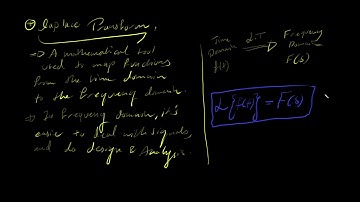 Laplace Transform,
→ A mathematical tool
used to map functions
from the time domain
to the frequency domain.
→ In Frequency domain, it's
easier to deal with signals,
and do design & Analysis.
Time Domain f(t)
L.T
Frequency Domain F(s)
L{f(t)} = F(s)